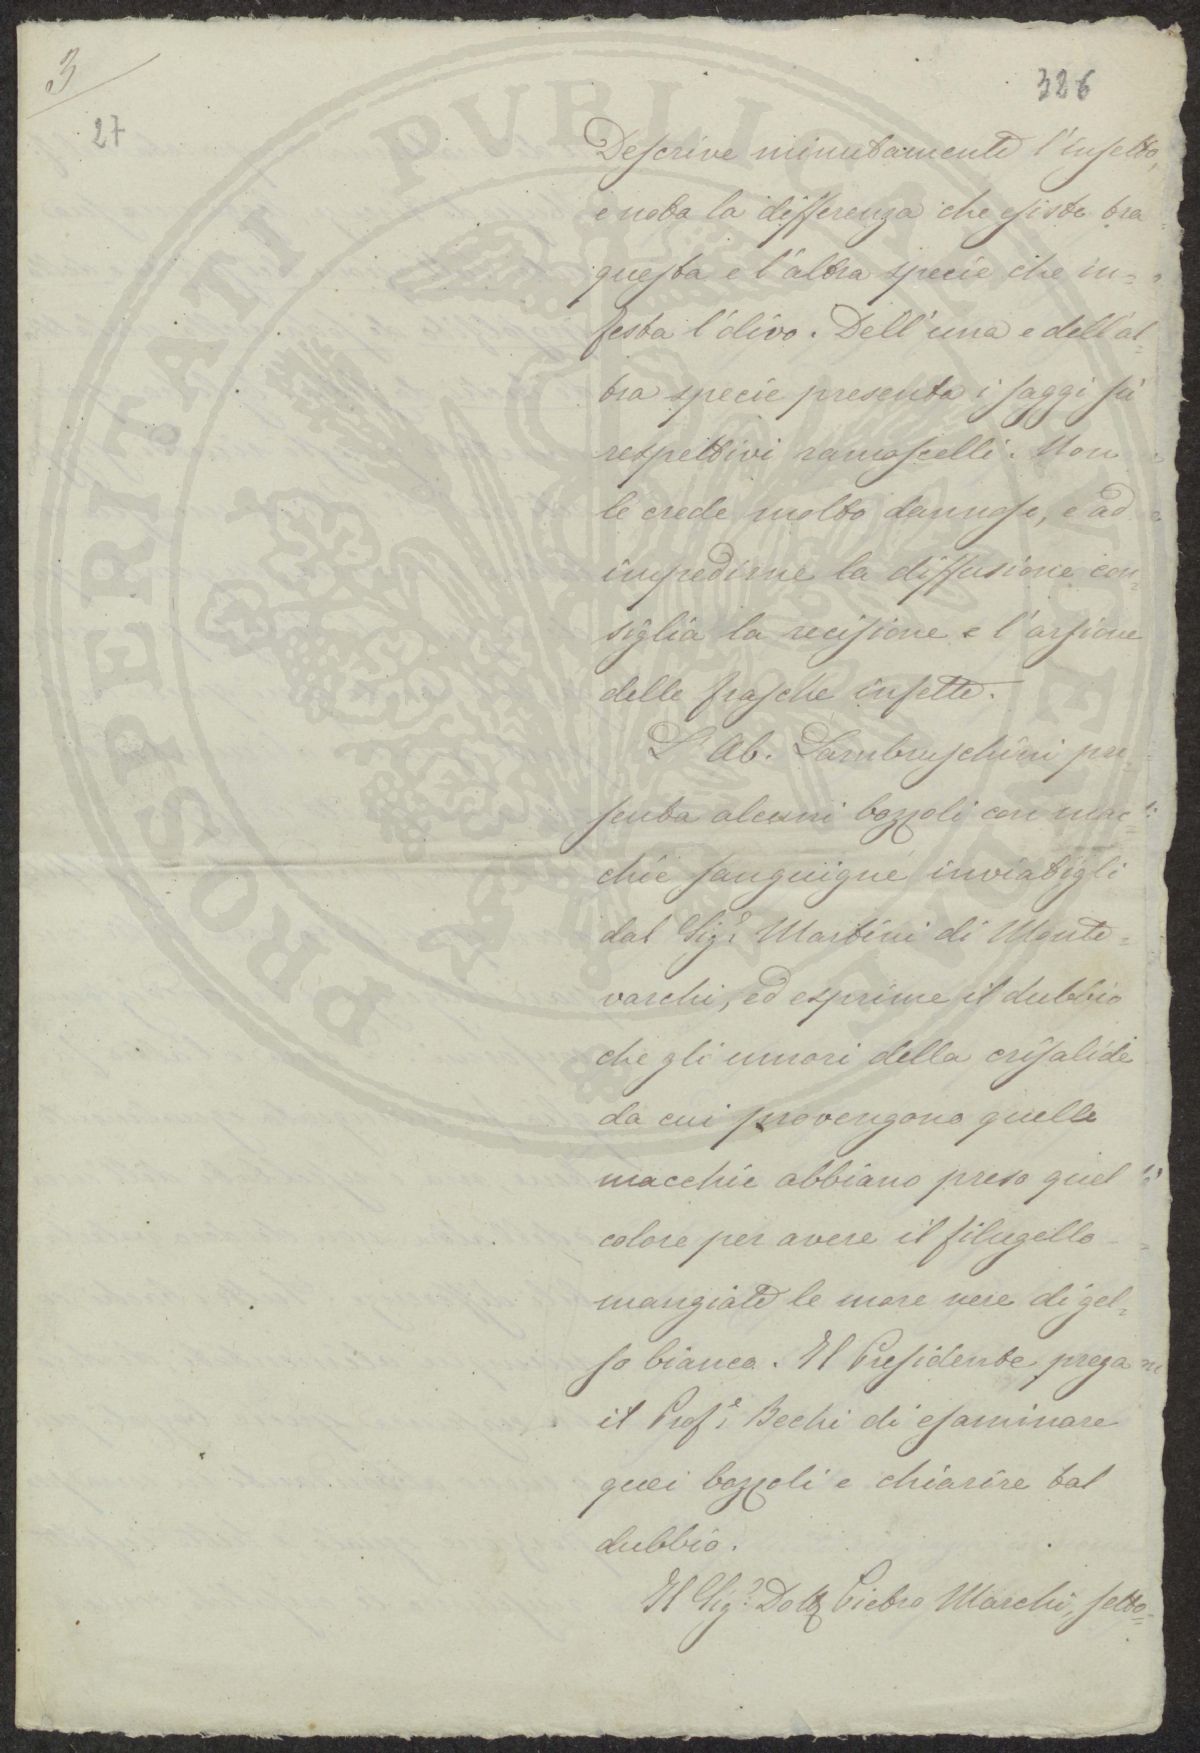 3
326
27
Descrive minutamente l'insetto,
e nota la differenza che esiste tra
questa e l'altra specie che in=
festa l'olivo. Dell'una e dell'al=
tra specie presenta i saggi su
respettivi ramoscelli. Non
le crede molto dannose, e ad
impedirne la diffusione con=
siglia la recisione e l'arsione
delle frasche infette.
L'Ab. Lambruschini pre=
senta alcuni bozzoli con mac=
chie sanguigne inviatigli
dal Sig.e Martini di Monte=
varchi, ed esprime il dubbio
che gli umori della crisalide
da cui provengono quelle
macchie abbiano preso quel
colore per avere il filugello
mangiate le more nere di gel=
so bianco. Il Presidente prega
il Prof.e Bechi di esaminare
quei bozzoli e chiarire tal
dubbio.
Il Sig.e Dott Pietro Marchi, setto=
PROSPERITATI PUBLICAE AUGENDAE